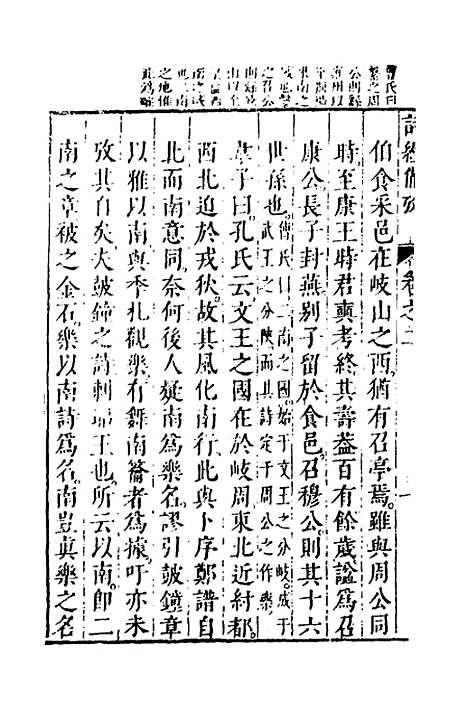 詩經備攷 卷之二
伯食采邑在岐山之西猶有召亭焉雖與周公同
時至康王時君奭考終其壽葢百有餘歲諡爲召
康公長子封燕别子留於食邑召穆公則其十六
世孫也傅氏曰二南之國始于文王之分岐成于
武王之分陝而其詩定于周公之作樂
韋子曰孔氏云文王之國在於岐周東北近紂都
西北迫於戎狄故其風化南行此與卜序鄭譜自
北而南意同奈何後人㨗南爲樂名謬引鼓鐘章
以雅以南與季札觀樂有舞南籥者爲據吁亦未
攷其自矣夫鼓鐘之詩刺幽王也所云以南卽二
南之章被之金石樂以南詩爲名南豈眞樂之名